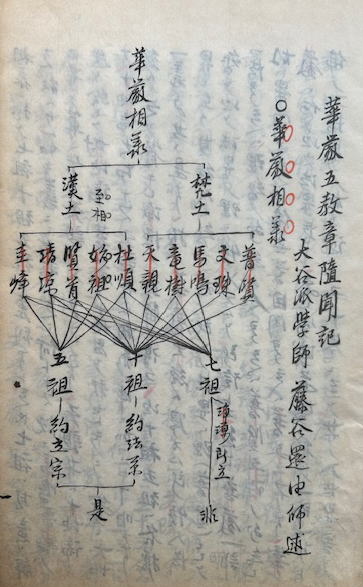 華嚴五教章隨聞記
大谷派學師 藤谷還由師述
○華嚴相承
華嚴相承
梵土
漢土
至相
普賢
文殊
馬鳴
竜樹
天親
杜順
賢首
清凉
圭峰
七祖
非
十祖－約法系
五祖－約立宗
是